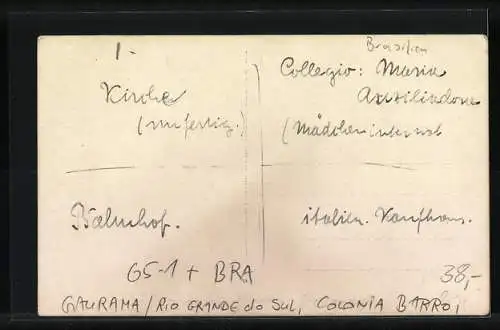 1-
Brasilien
Kirche
(unfertig)
Collegio: Maria
Auxiliadora
(Mädcheninternat
Bahnhof.
italien. Kaufhaus.
G5-1 + BRA
38,-
GAURAMA/RIO GRANDE do SUL, COLONIA BARRO,